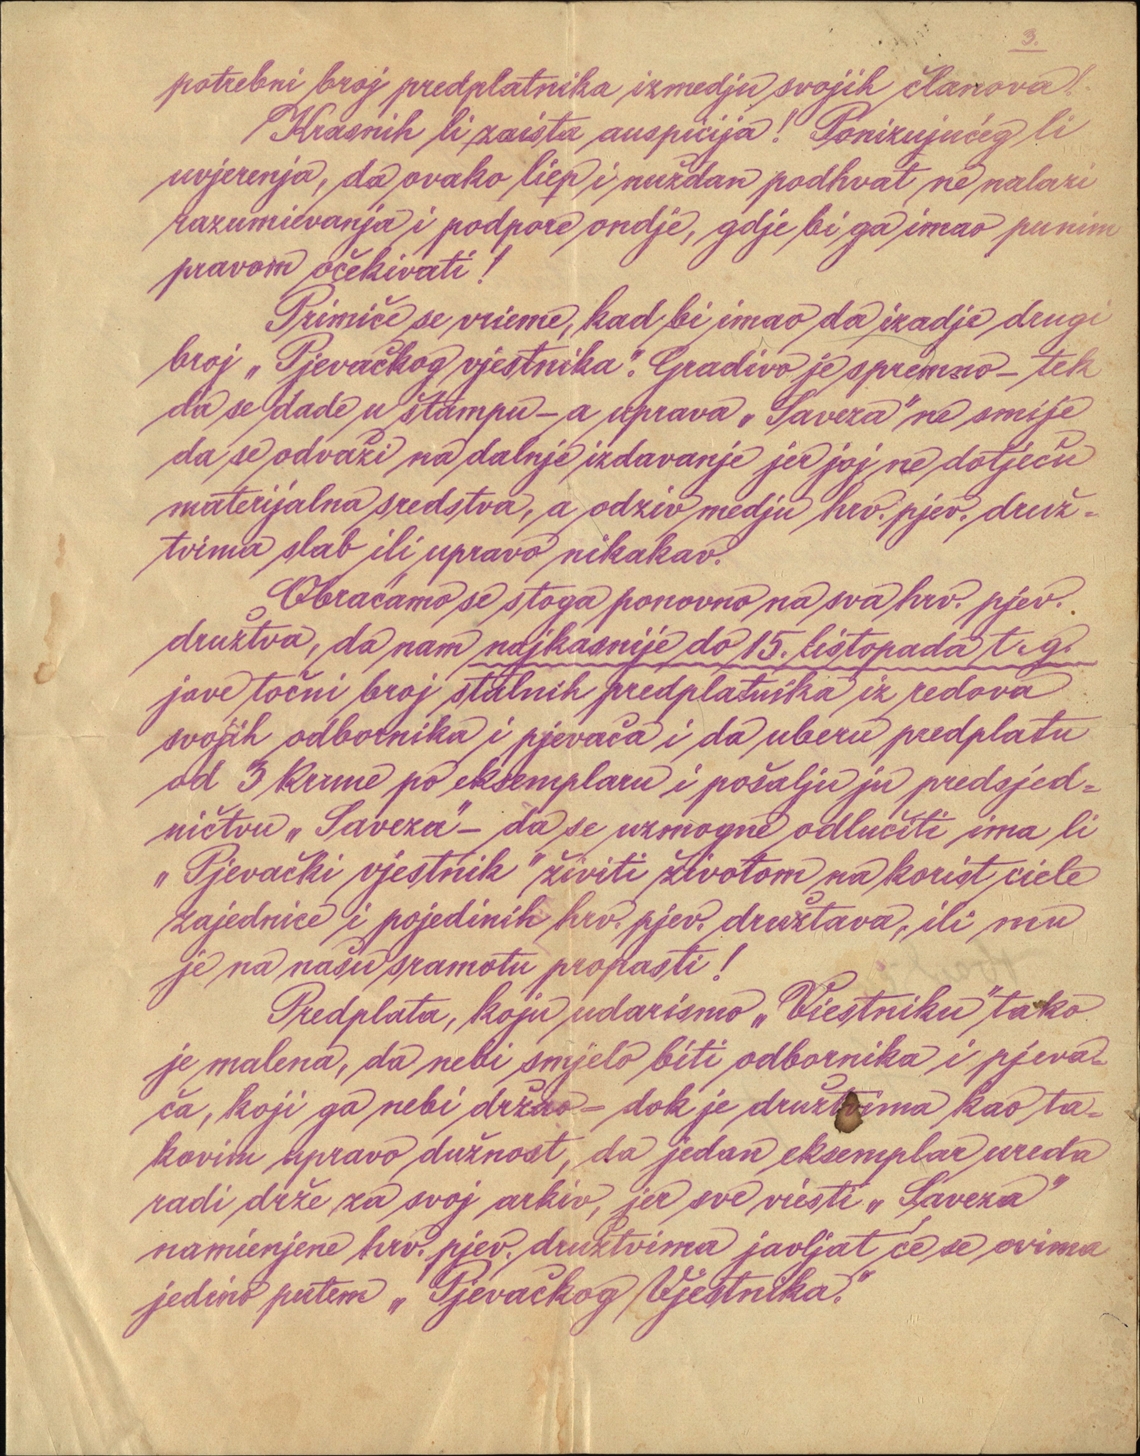 3.
potrebni broj predplatnika izmedju svojih članova!
Krasnih li zaista auspicija! Ponizujućeg li
uvjerenja, da ovako liep i nuždan podhvat ne nalazi
razumievanja i podpore ondje, gdje bi ga imao punim
pravom očekivati!
Primiče se vrieme, kad bi imao da izadje drugi
broj „Pjevačkog vjestnika". Gradivo je spremno – tek
da se dade u štampu – a uprava „Saveza" ne smije
da se odvaži na dalnje izdavanje jer joj ne dotječu
materijalna sredstva, a odziv medju hrv. pjev. druž=
tvima slab ili upravo nikakav.
Obraćamo se stoga ponovno na sva hrv. pjev.
družtva, da nam najkasnije do 15. listopada t. g.
jave točni broj stalnih predplatnika iz redova
svojih odbornika i pjevača i da uberu predplatu
od 3 krune po eksemplaru i pošalju ju predsjed=
ničtvu „Saveza" – da se uzmogne odlučiti ima li
„Pjevački vjestnik" živiti životom na korist ciele
zajednice i pojedinih hrv. pjev. družtava, ili mu
je na našu sramotu propasti!
Predplata, koju udarismo „Viestniku" tako
je malena, da nebi smjelo biti odbornika i pjeva=
ča, koji ga nebi držao – dok je družtvima kao ta=
kovim upravo dužnost, da jedan eksemplar ureda
radi drže za svoj arkiv, jer sve viesti „Saveza"
namienjene hrv. pjev. družtvima javljat će se ovima
jedino putem „Pjevačkog Vjestnika."